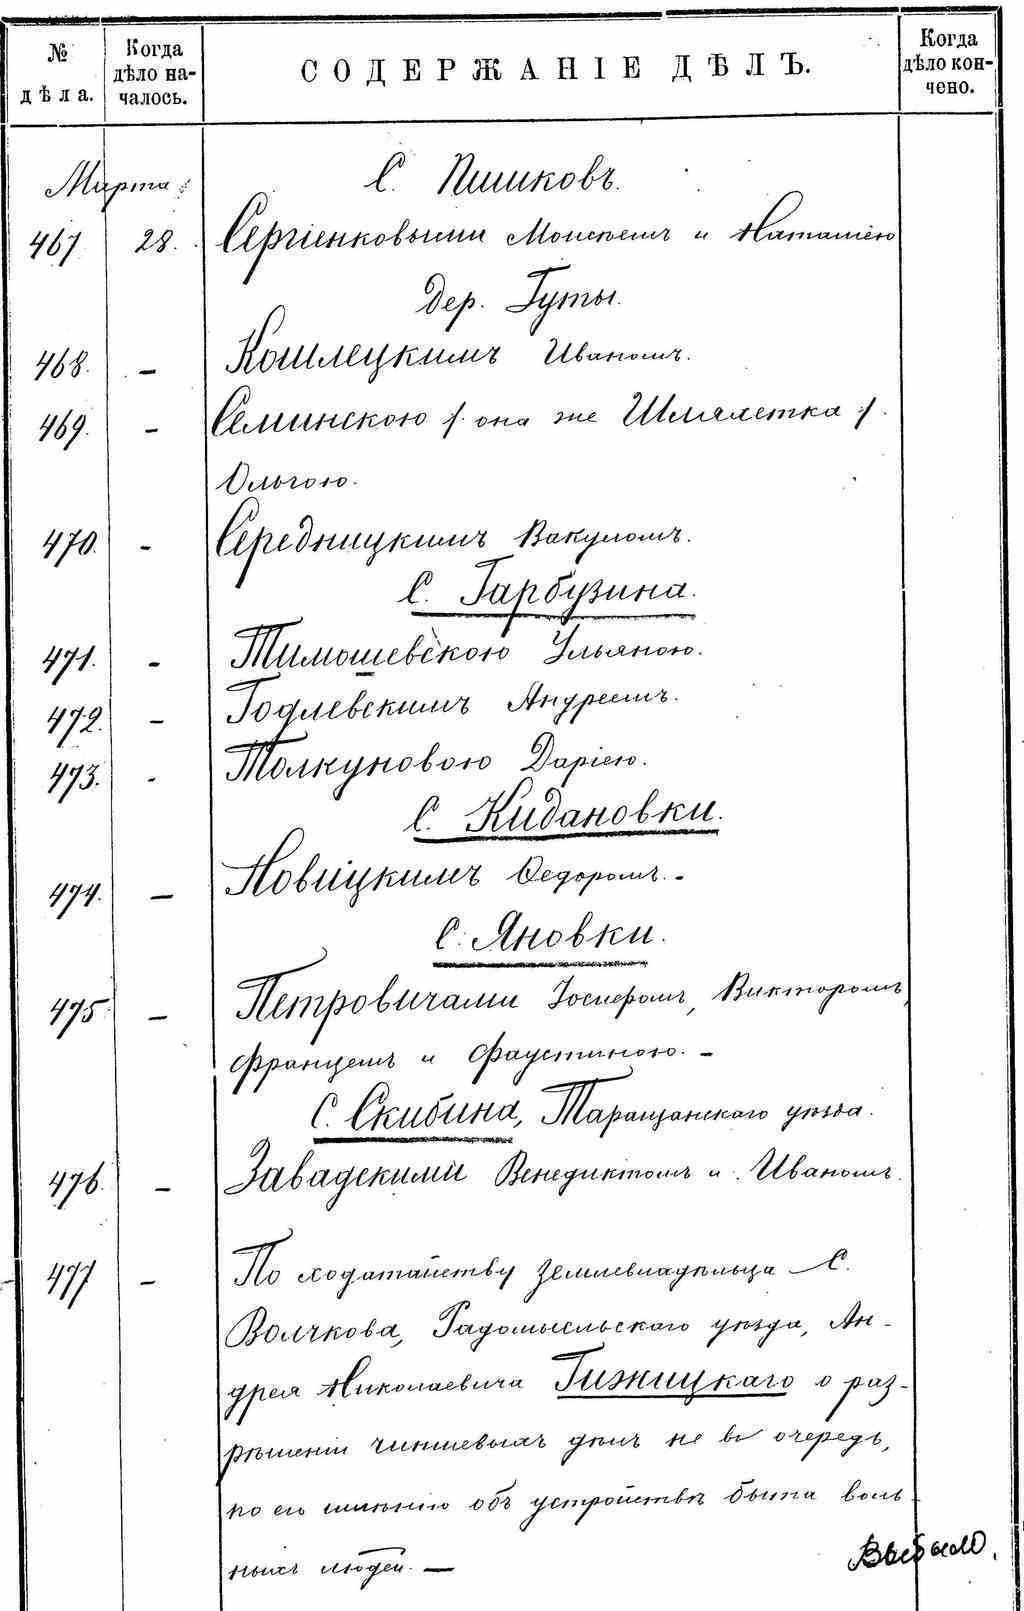 № дѣла.
Когда дѣло началось.
СОДЕРЖАНІЕ ДѢЛЪ.
Когда дѣло кончено.
Марта
С. Пишковъ.
467. 28. Сергіенковыми Моисѣемъ и Наталіею
Дер. Гуты.
468. — Кошлецкимъ Иваномъ.
469. — Семинскою /: она же Шляхетка :/
Ольгою.
470. — Середницкимъ Вакуломъ.
С. Гарбузина.
471. — Тимошевскою Ульяною.
472. — Годлевскимъ Андреемъ.
473. - Толкуновою Даріею.
С. Кидановки.
474. — Новіцкимъ Ѳедоромъ. -
С. Яновки.
475. — Петровичами Іосифомъ, Викторомъ,
Францемъ и Фаустиною. —
С. Скибина, Таращанскаго уѣзда.
476. — Завадскими Венедиктомъ и Иваномъ.
477 — По ходатайству землевладѣльца С.
Волчкова, Радомысльскаго уѣзда, Ан-
дрея Николаевича Гижицкаго о раз-
рѣшеніи чиншевыхъ дѣлъ не въ очередь,
по его имѣнію объ устройствѣ быта воль-
ныхъ людей. —
Выбыло.